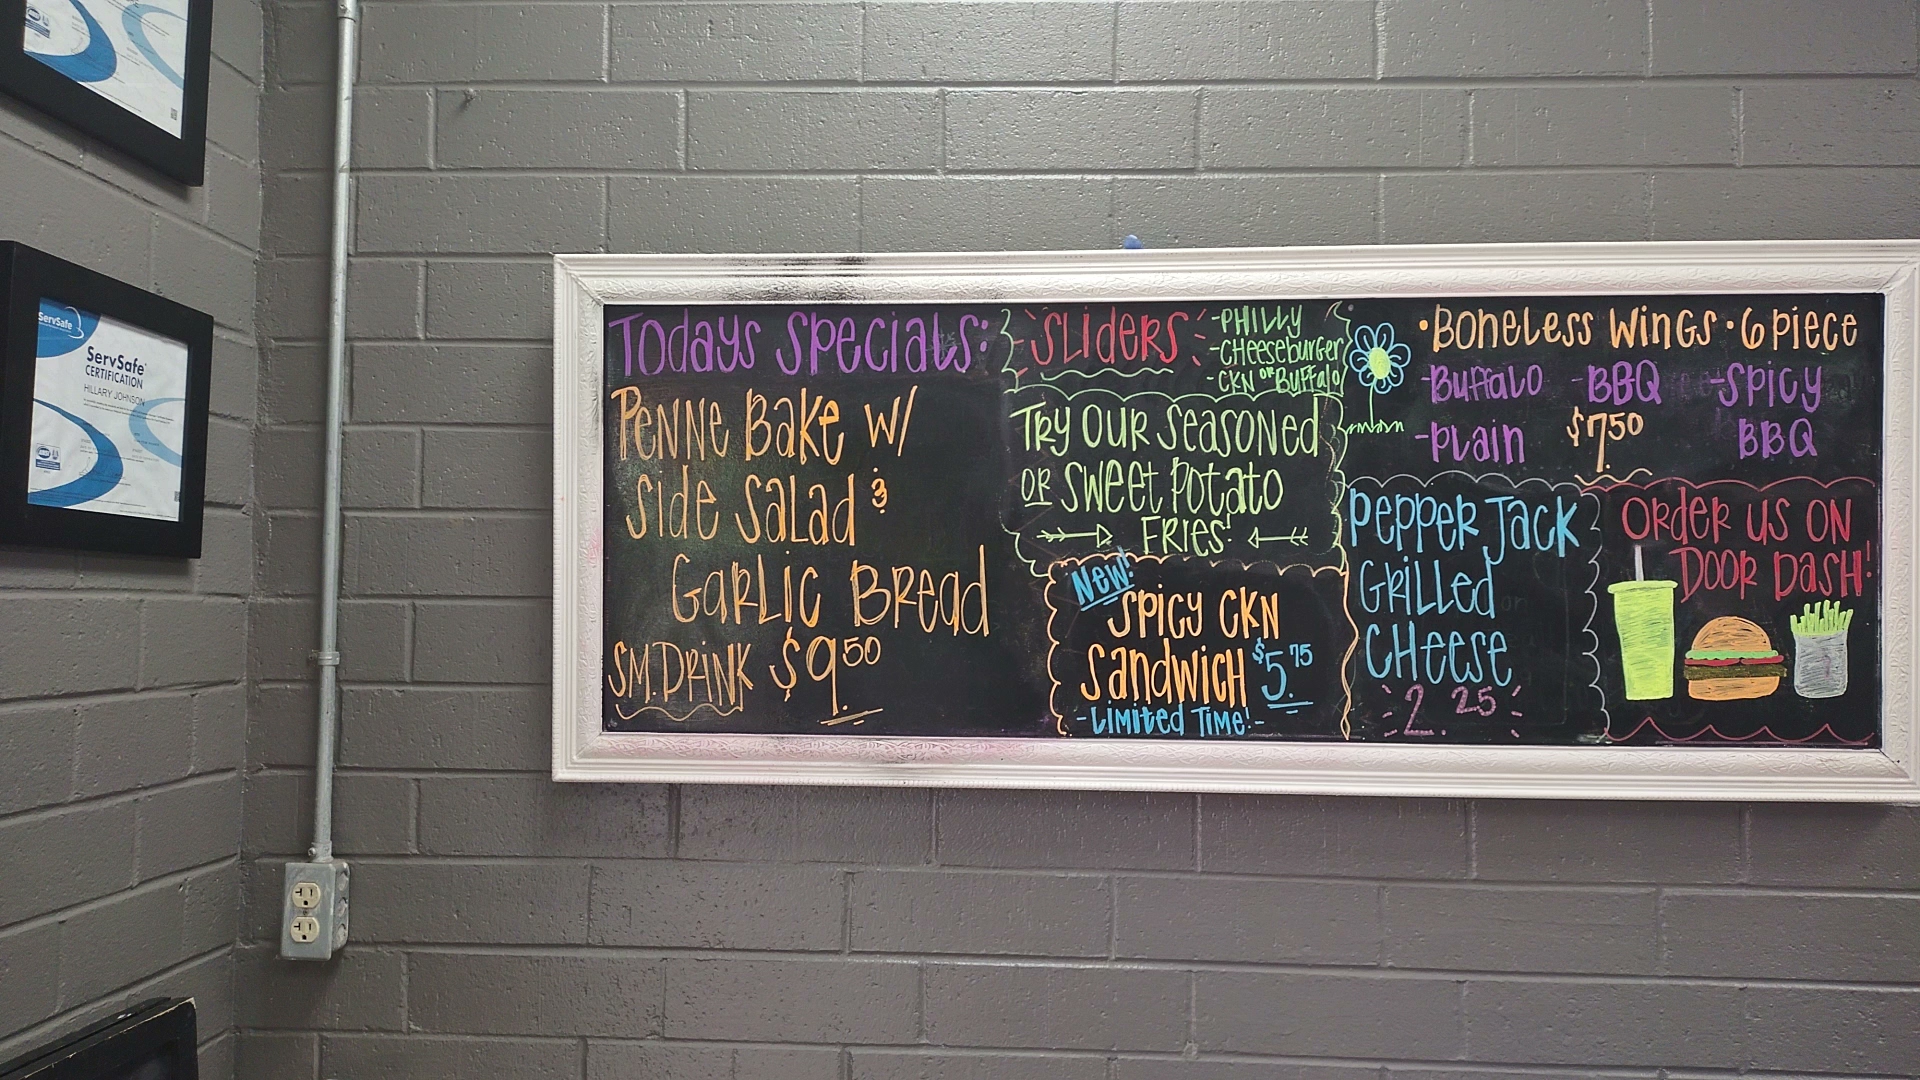 ServSafe
ServSafe®
CERTIFICATION
HILLARY JOHNSON
Todays Specials:
Penne Bake w/
Side Salad &
Garlic Bread
SM. Drink $9.50
Sliders
-Philly
-Cheeseburger
-CKN or Buffalo
Try our Seasoned
or Sweet Potato
Fries!
New!
Spicy CKN
Sandwich $5.75
-Limited Time!-
•Boneless Wings•6 piece
-Buffalo -BBQ -Spicy
BBQ
-Plain $7.50
Pepper Jack
Grilled
Cheese
2.25
Order us on
Door Dash!